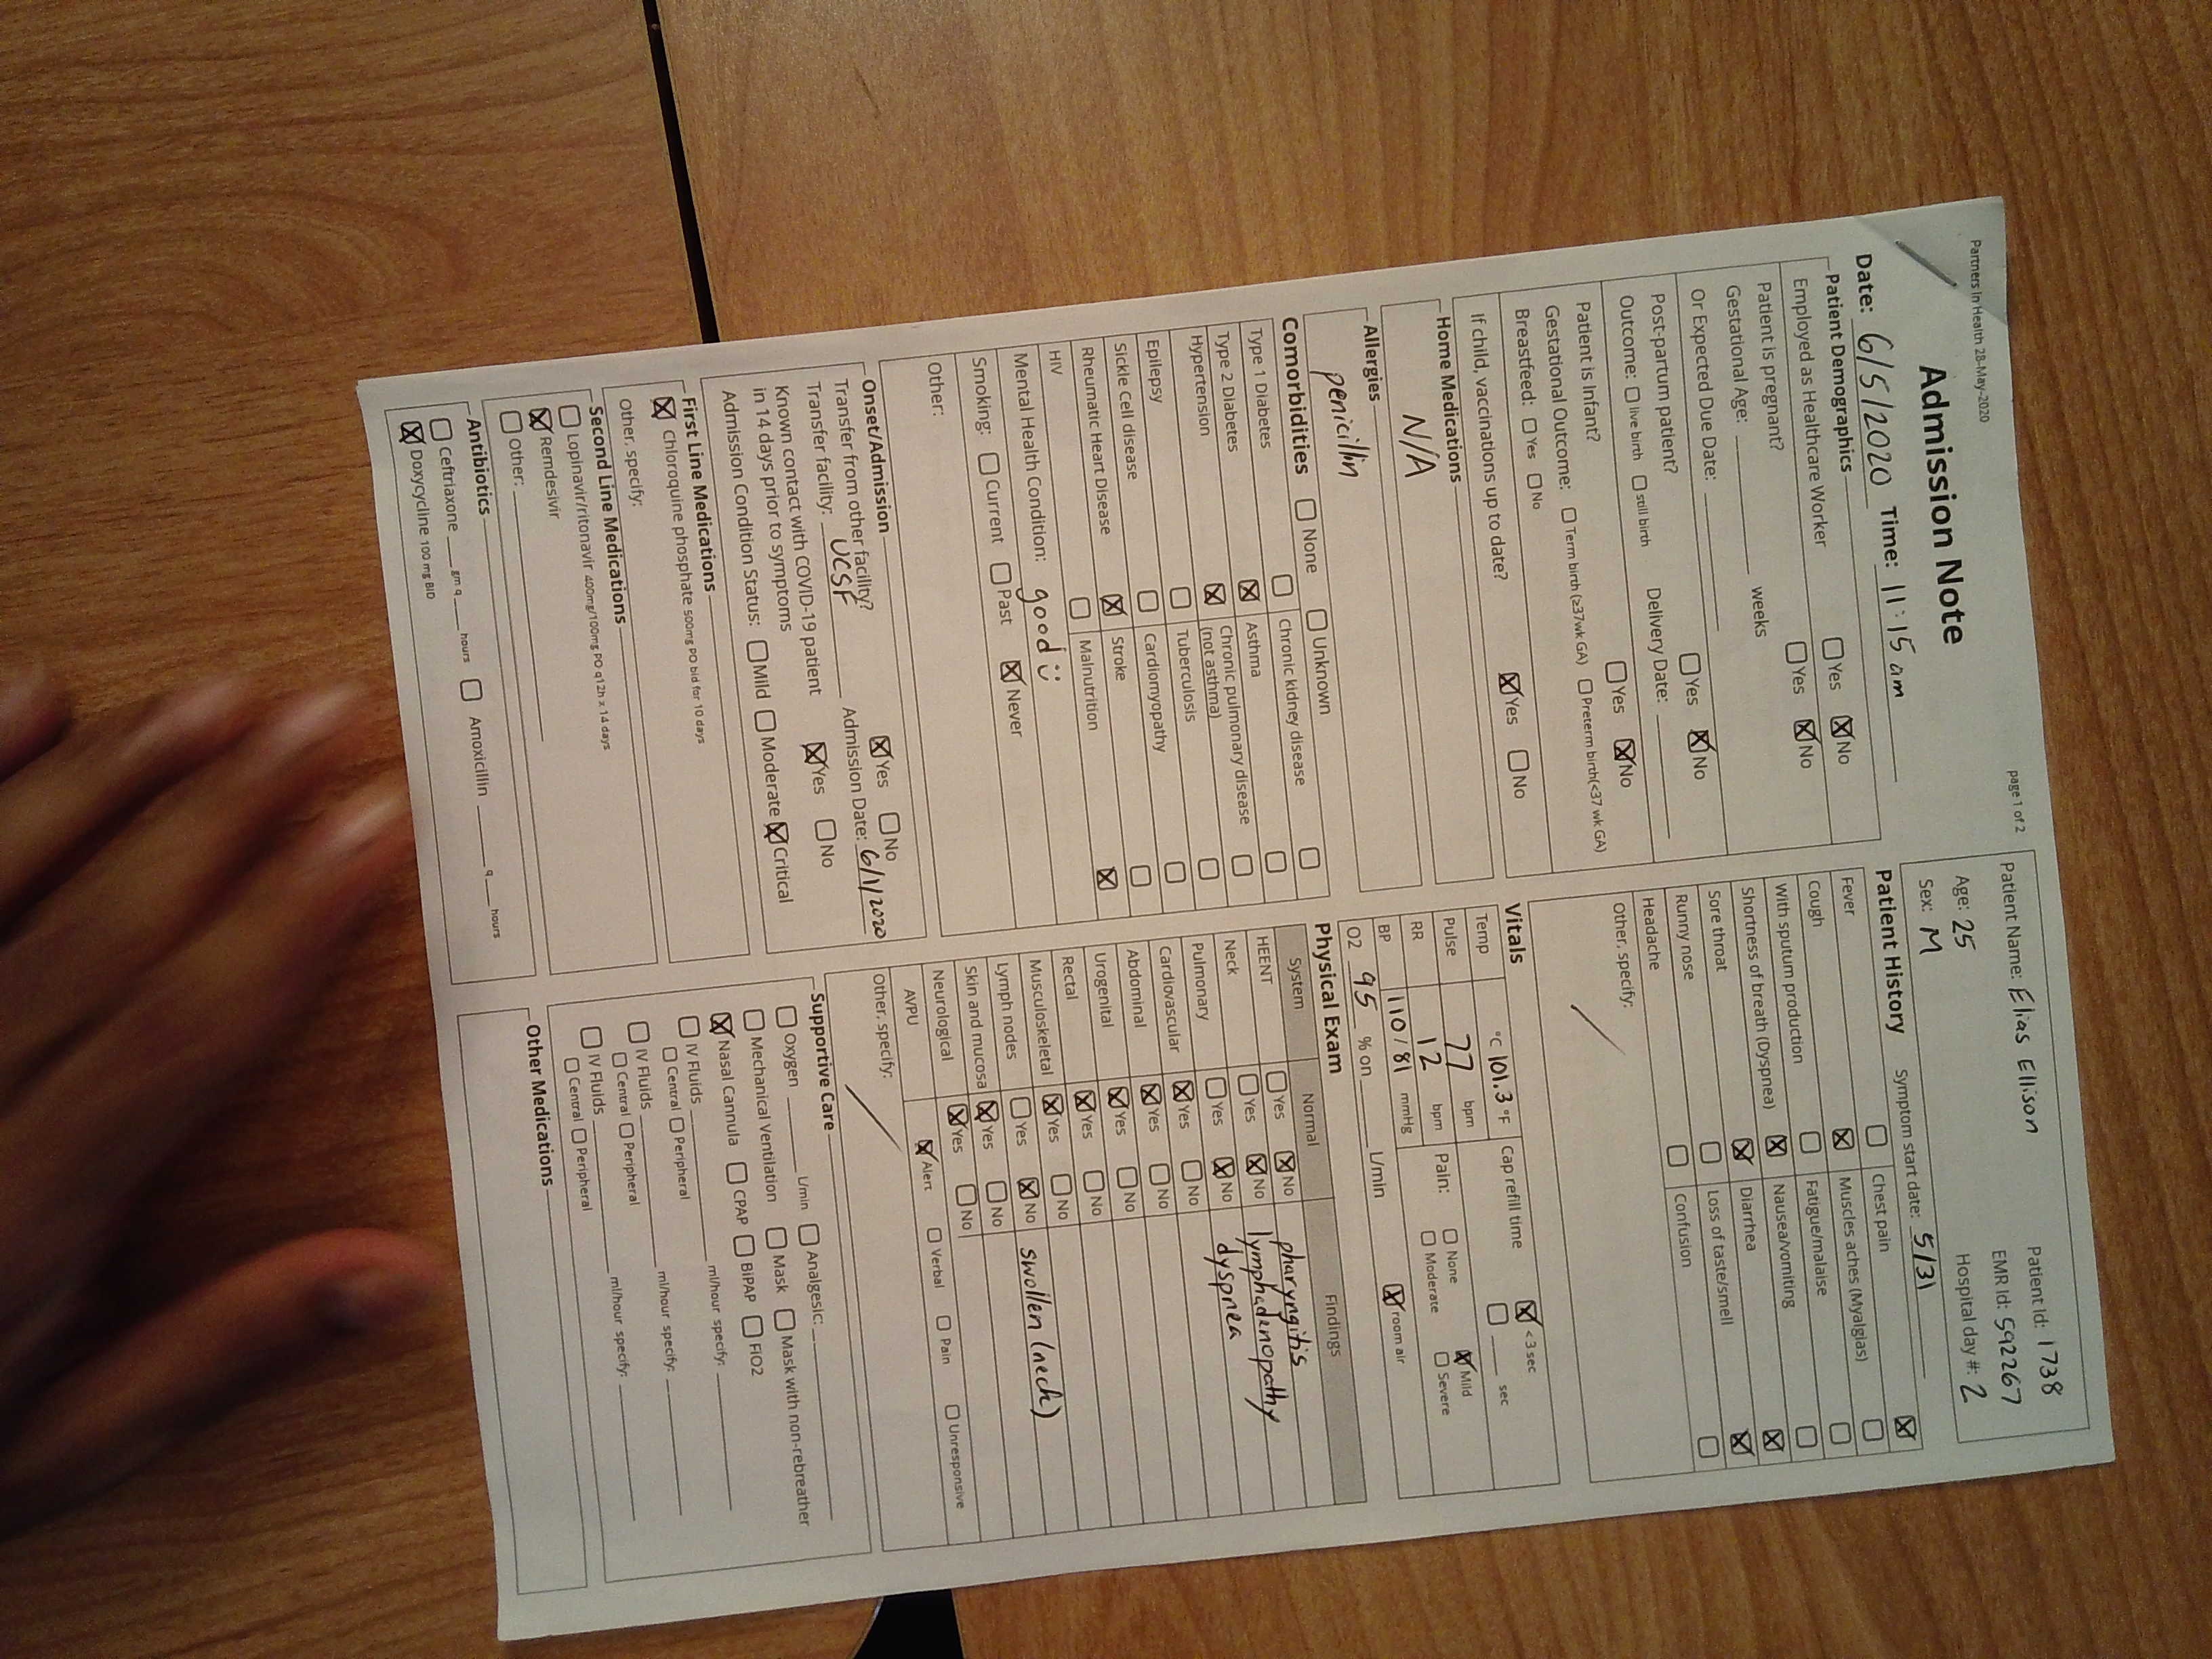 Partners In Health 28-May-2020
page 1 of 2
Admission Note
Date: 6/5/2020 Time: 11:15 am
Patient Name: Elias Ellison
Patient Id: 1738
Age: 25
EMR Id: 592267
Sex: M
Hospital day #: 2
Patient Demographics
Employed as Healthcare Worker ☐ Yes ☒ No
Patient is pregnant? ☐ Yes ☒ No
Gestational Age: ____ weeks
Or Expected Due Date: ____
Post-partum patient? ☐ Yes ☒ No
Outcome: ☐ live birth ☐ still birth Delivery Date: ____
Patient is Infant? ☐ Yes ☒ No
Gestational Outcome: ☐ Term birth (≥37wk GA) ☐ Preterm birth(<37 wk GA)
Breastfeed: ☐ Yes ☐ No
If child, vaccinations up to date? ☒ Yes ☐ No
Home Medications
N/A
Allergies
penicillin
Comorbidities ☐ None ☐ Unknown
Type 1 Diabetes ☐ Chronic kidney disease ☐
Type 2 Diabetes ☒ Asthma ☐
Hypertension ☒ Chronic pulmonary disease (not asthma) ☐
Epilepsy ☐ Tuberculosis ☐
Sickle Cell disease ☐ Cardiomyopathy ☐
Rheumatic Heart Disease ☒ Stroke ☐
HIV ☐ Malnutrition ☒
Mental Health Condition: good :)
Smoking: ☐ Current ☐ Past ☒ Never
Other:
Onset/Admission
Transfer from other facility? ☒ Yes ☐ No
Transfer facility: UCSF Admission Date: 6/1/2020
Known contact with COVID-19 patient
in 14 days prior to symptoms ☒ Yes ☐ No
Admission Condition Status: ☐ Mild ☐ Moderate ☒ Critical
First Line Medications
☒ Chloroquine phosphate 500mg PO bid for 10 days
Other, specify:
Second Line Medications
☐ Lopinavir/ritonavir 400mg/100mg PO q12h x 14 days
☒ Remdesivir
☐ Other: ____
Antibiotics
☐ Ceftriaxone ____ gm q ____ hours ☐ Amoxicillin ____ q ____ hours
☒ Doxycycline 100 mg BID
Patient History Symptom start date: 5/31
Fever ☐ Chest pain ☒
Cough ☒ Muscles aches (Myalgias) ☐
With sputum production ☐ Fatigue/malaise ☐
Shortness of breath (Dyspnea) ☒ Nausea/vomiting ☐
Sore throat ☒ Diarrhea ☒
Runny nose ☐ Loss of taste/smell ☒
Headache ☐ Confusion ☐
Other, specify:
Vitals
Temp °C 101.3 °F Cap refill time ☒ <3 sec ☐ ____ sec
Pulse 77 bpm Pain: ☐ None ☒ Mild
RR 12 bpm ☐ Moderate ☐ Severe
BP 110/81 mmHg
O2 95 % on ____ L/min ☒ room air
Physical Exam
System Normal Findings
HEENT ☐ Yes ☒ No pharyngitis
Neck ☐ Yes ☒ No lymphadenopathy
Pulmonary ☐ Yes ☒ No dyspnea
Cardiovascular ☒ Yes ☐ No
Abdominal ☒ Yes ☐ No
Urogenital ☒ Yes ☐ No
Rectal ☒ Yes ☐ No
Musculoskeletal ☒ Yes ☐ No
Lymph nodes ☐ Yes ☒ No swollen (neck)
Skin and mucosa ☒ Yes ☐ No
Neurological ☒ Yes ☐ No
AVPU ☒ Alert ☐ Verbal ☐ Pain ☐ Unresponsive
Other, specify:
Supportive Care
☐ Oxygen ____ L/min ☐ Analgesic: ____
☐ Mechanical Ventilation ☐ Mask ☐ Mask with non-rebreather
☒ Nasal Cannula ☐ CPAP ☐ BiPAP ☐ FiO2
☐ IV Fluids ____ ml/hour specify: ____
☐ Central ☐ Peripheral
☐ IV Fluids ____ ml/hour specify: ____
☐ Central ☐ Peripheral
☐ IV Fluids ____ ml/hour specify: ____
☐ Central ☐ Peripheral
Other Medications